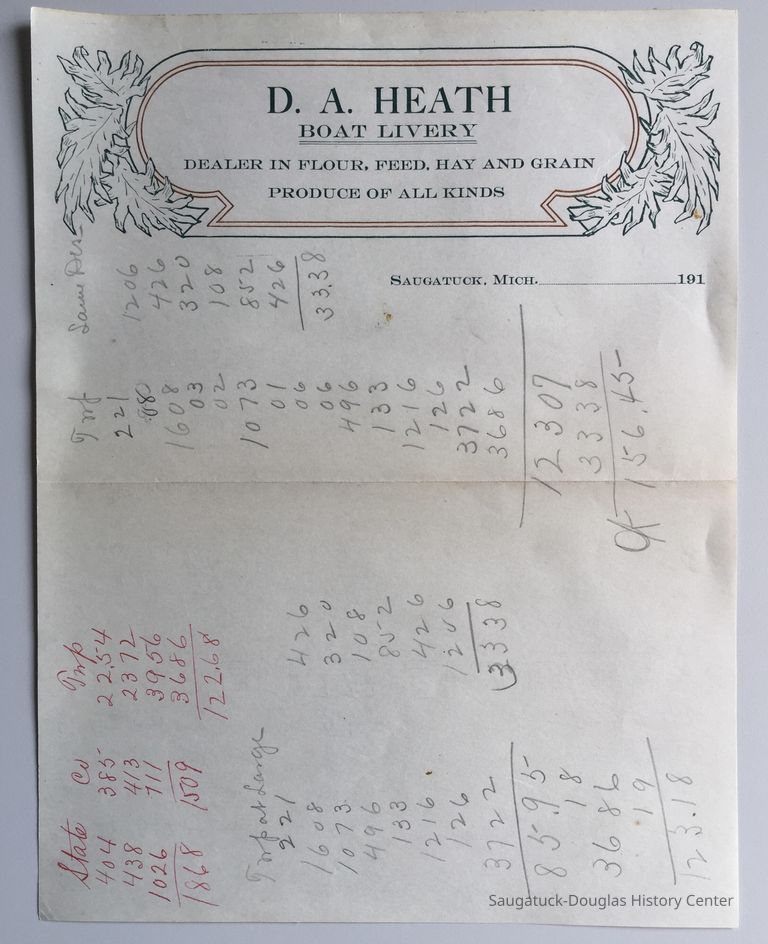 D. A. HEATH
BOAT LIVERY
DEALER IN FLOUR, FEED, HAY AND GRAIN
PRODUCE OF ALL KINDS
SAUGATUCK, MICH. 191
State Co Twp
404 385 2254
438 413 2372
1026 711 3956
3686
1868 1509 122.68
Twp
221
88
1608
03
02
1073
01
06
06
496
133
1216
126
3722
3686
12307
3338
156.45
1206
426
320
108
852
426
33.38
Twp at Large
221
1608
1073
496
133
1216
126
3722
85.95
18
3686
19
123.18
426
320
108
852
426
1206
3338
Saugatuck-Douglas History Center